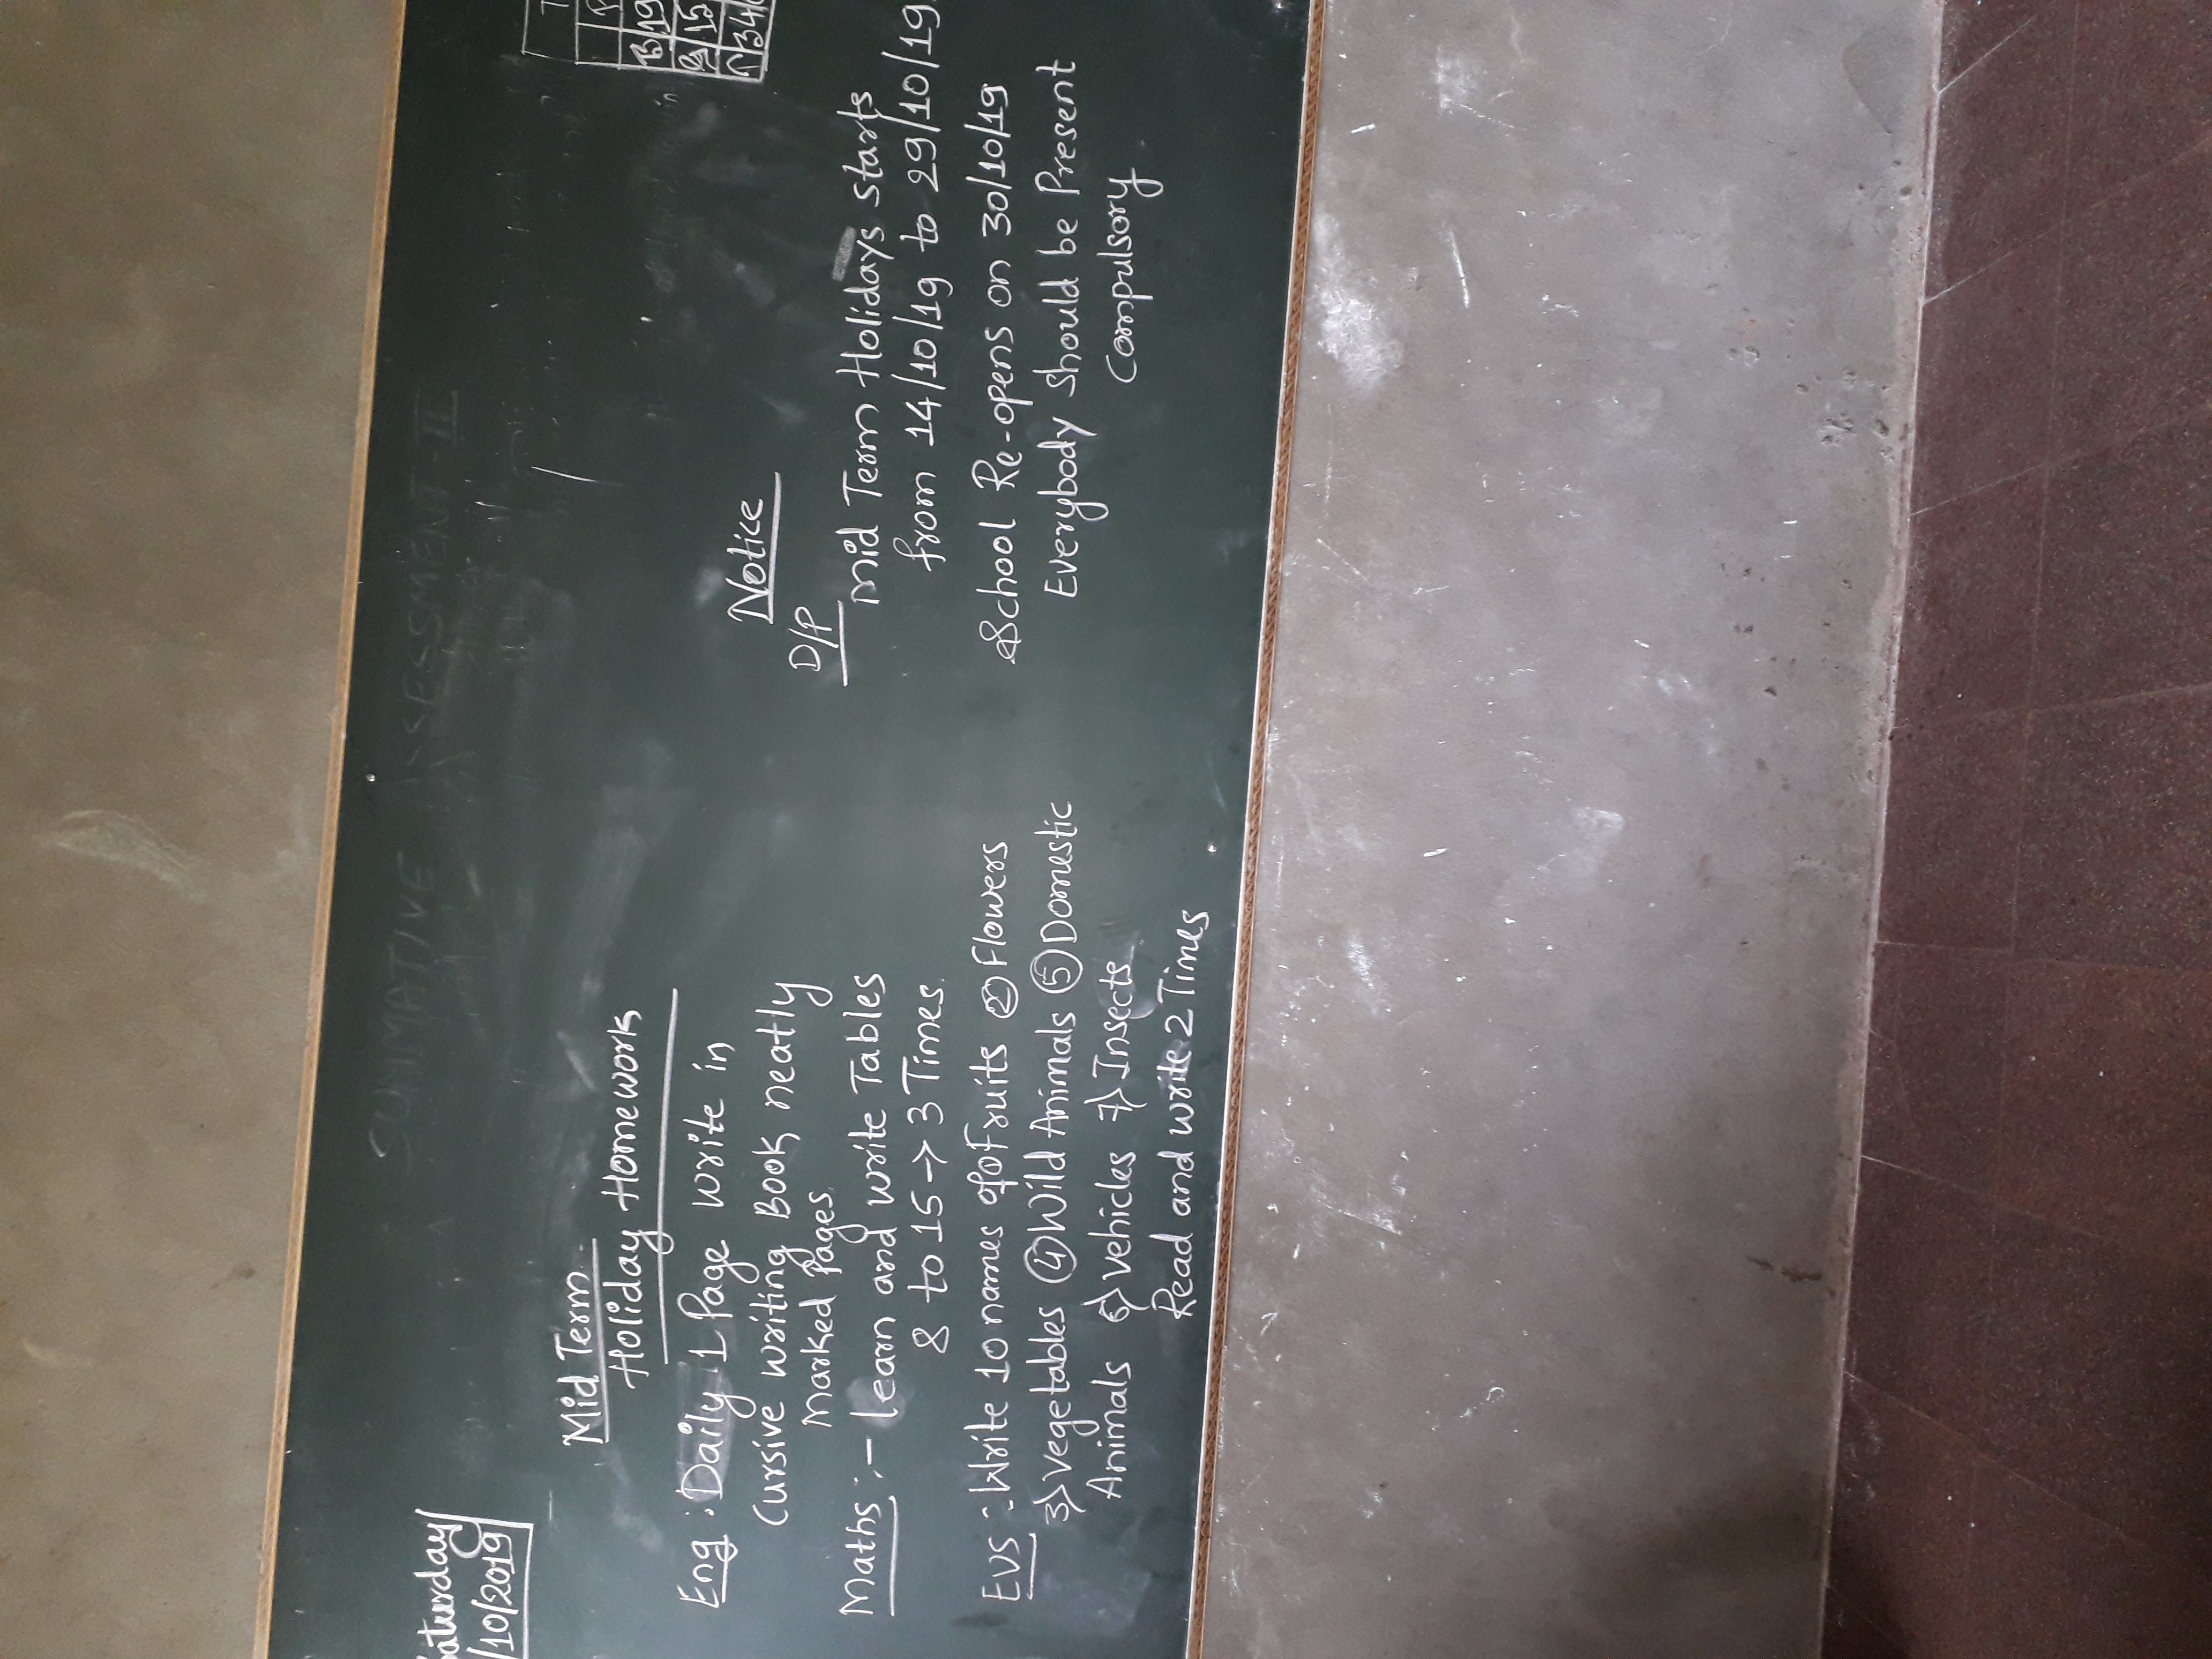 Saturday
/10/2019
SUMMATIVE ASSESSMENT-II
Mid Term
Holiday Homework
Eng : Daily 1 Page write in
Cursive writing Book neatly
Marked Pages.
Maths :- Learn and write Tables
8 to 15 → 3 Times.
EVS :- Write 10 names of Fruits ② Flowers
3) Vegetables ④ Wild Animals ⑤ Domestic
Animals 6) Vehicles 7) Insects
Read and write 2 Times
Notice
D/P
Mid Term Holidays starts
from 14/10/19 to 29/10/19.
School Re-opens on 30/10/19
Everybody should be Present
Compulsory
T
B 19
G 15
T 34